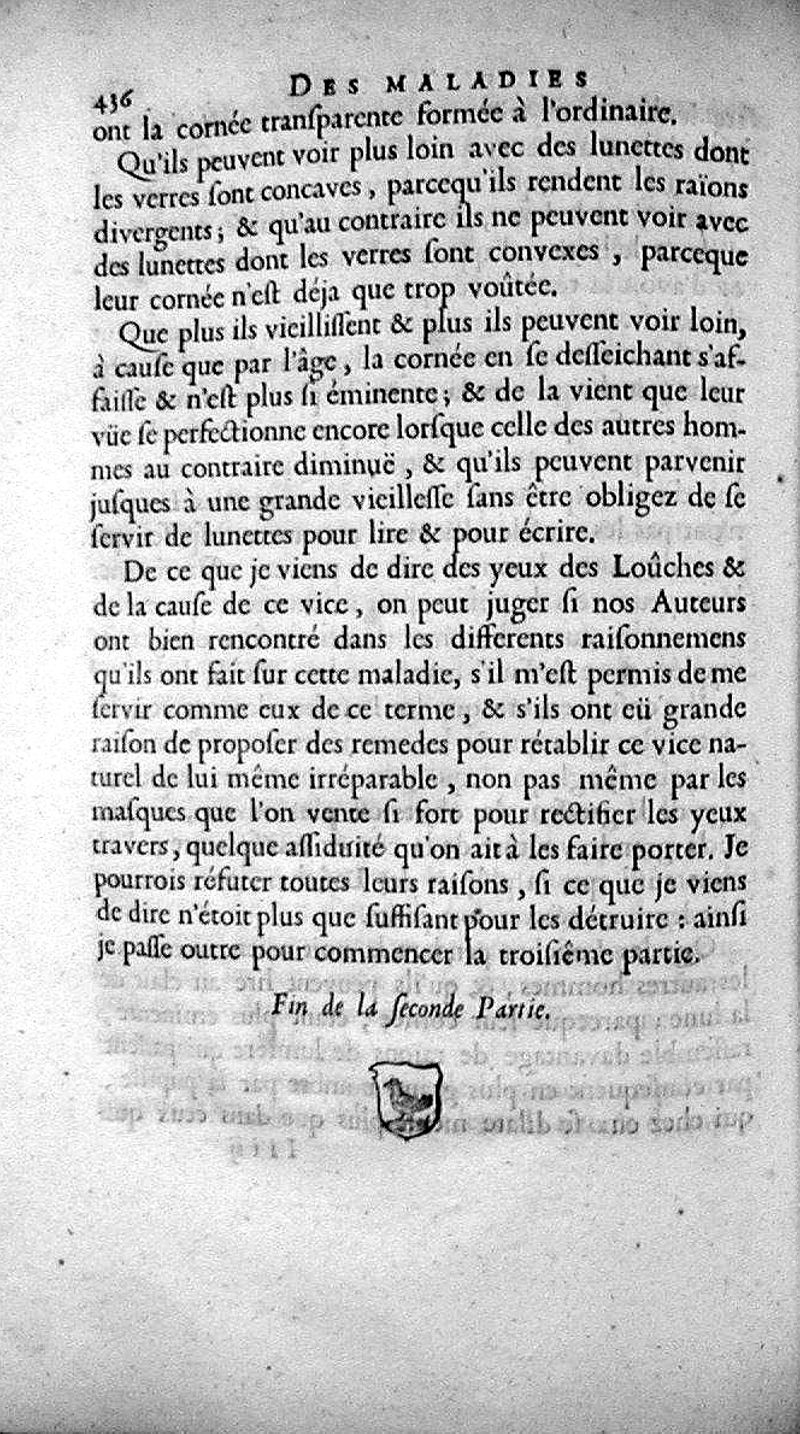 436 DES MALADIES
ont la cornée tranſparente formée à l'ordinaire.
Qu'ils peuvent voir plus loin avec des lunettes dont
les verres ſont concaves, parcequ'ils rendent les raïons
divergents; & qu'au contraire ils ne peuvent voir avec
des lunettes dont les verres ſont convexes, parceque
leur cornée n'eſt déja que trop voûtée.
Que plus ils vieilliſſent & plus ils peuvent voir loin,
à cauſe que par l'âge, la cornée en ſe deſſeichant s'af-
faiſſe & n'eſt plus ſi éminente; & de la vient que leur
vüe ſe perfectionne encore lorſque celle des autres hom-
mes au contraire diminuë, & qu'ils peuvent parvenir
juſques à une grande vieilleſſe ſans être obligez de ſe
ſervir de lunettes pour lire & pour écrire.
De ce que je viens de dire des yeux des Loûches &
de la cauſe de ce vice, on peut juger ſi nos Auteurs
ont bien rencontré dans les differents raiſonnemens
qu'ils ont fait ſur cette maladie, s'il m'eſt permis de me
ſervir comme eux de ce terme, & s'ils ont eü grande
raiſon de propoſer des remedes pour rétablir ce vice na-
turel de lui même irréparable, non pas même par les
maſques que l'on vente ſi fort pour rectifier les yeux
travers, quelque aſſiduité qu'on ait à les faire porter. Je
pourrois réfuter toutes leurs raiſons, ſi ce que je viens
de dire n'étoit plus que ſuffiſant pour les détruire : ainſi
je paſſe outre pour commencer la troiſiême partie.
Fin de la ſeconde Partie.